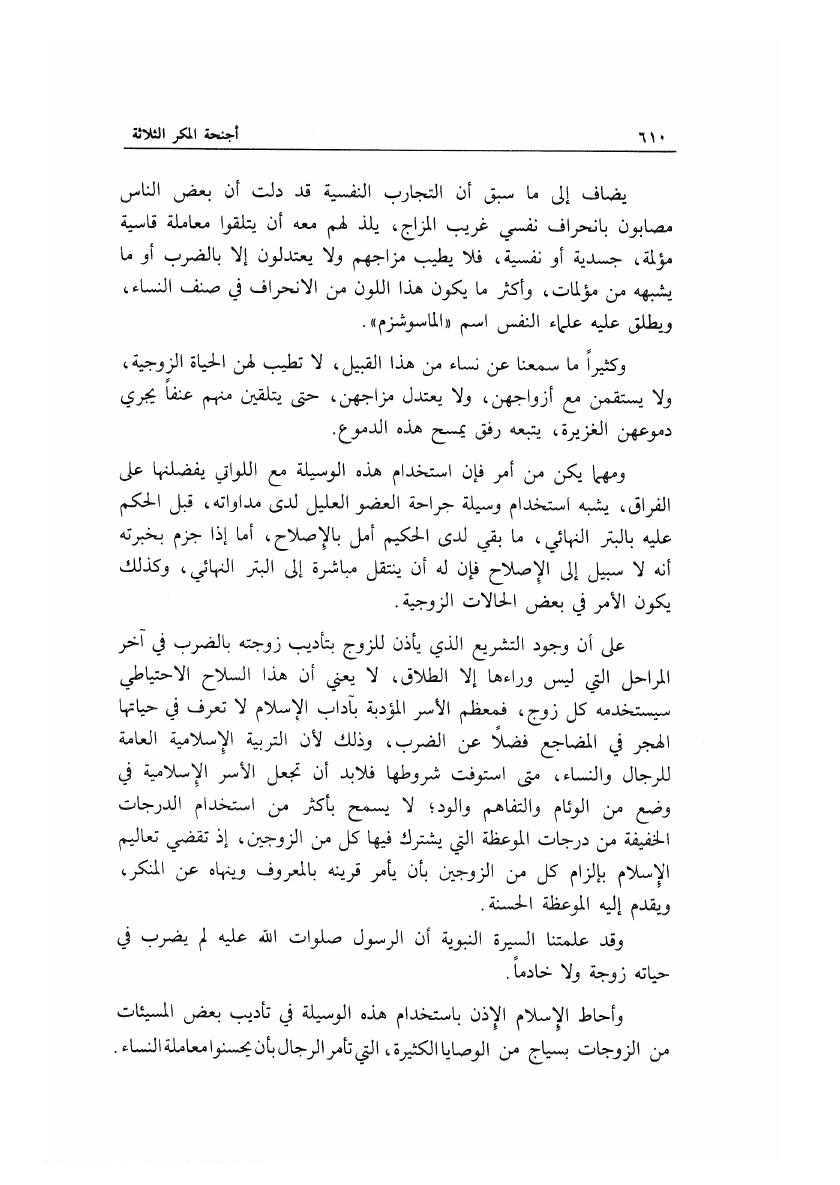 ٦١٠ أجنحة المكر الثلاثة
يضاف إلى ما سبق أن التجارب النفسية قد دلت أن بعض الناس
مصابون بانحراف نفسي غريب المزاج، يلذ لهم معه أن يتلقوا معاملة قاسية
مؤلمة، جسدية أو نفسية، فلا يطيب مزاجهم ولا يعتدلون إلا بالضرب أو ما
يشبهه من مؤلمات، وأكثر ما يكون هذا اللون من الانحراف في صنف النساء،
ويطلق عليه علماء النفس اسم «الماسوشزم».
وكثيراً ما سمعنا عن نساء من هذا القبيل، لا تطيب لهن الحياة الزوجية،
ولا يستقمن مع أزواجهن، ولا يعتدل مزاجهن، حتى يتلقين منهم عنفاً يجري
دموعهن الغزيرة، يتبعه رفق يمسح هذه الدموع.
ومهما يكن من أمر فإن استخدام هذه الوسيلة مع اللواتي يفضلنها على
الفراق، يشبه استخدام وسيلة جراحة العضو العليل لدى مداواته، قبل الحكم
عليه بالبتر النهائي، ما بقي لدى الحكيم أمل بالإصلاح، أما إذا جزم بخبرته
أنه لا سبيل إلى الإصلاح فإن له أن ينتقل مباشرة إلى البتر النهائي، وكذلك
يكون الأمر في بعض الحالات الزوجية.
على أن وجود التشريع الذي يأذن للزوج بتأديب زوجته بالضرب في آخر
المراحل التي ليس وراءها إلا الطلاق، لا يعني أن هذا السلاح الاحتياطي
سيستخدمه كل زوج، فمعظم الأسر المؤدبة بآداب الإسلام لا تعرف في حياتها
الهجر في المضاجع فضلاً عن الضرب، وذلك لأن التربية الإسلامية العامة
للرجال والنساء، متى استوفت شروطها فلابد أن تجعل الأسر الإسلامية في
وضع من الوئام والتفاهم والود؛ لا يسمح بأكثر من استخدام الدرجات
الخفيفة من درجات الموعظة التي يشترك فيها كل من الزوجين، إذ تقضي تعاليم
الإسلام بإلزام كل من الزوجين بأن يأمر قرينه بالمعروف وينهاه عن المنكر،
ويقدم إليه الموعظة الحسنة.
وقد علمتنا السيرة النبوية أن الرسول صلوات الله عليه لم يضرب في
حياته زوجة ولا خادماً.
وأحاط الإسلام الإذن باستخدام هذه الوسيلة في تأديب بعض المسيئات
من الزوجات بسياج من الوصايا الكثيرة، التي تأمر الرجال بأن يحسنوا معاملة النساء.